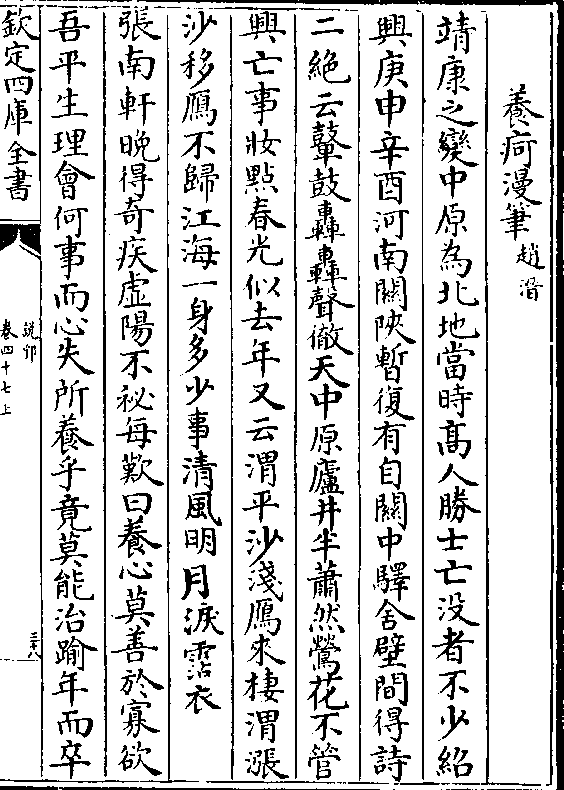 養疴漫筆趙溍
靖康之變中原為北地當時髙人勝士亡没者不少紹
興庚申辛酉河南關陜暫復有自關中驛舍壁間得詩
二絶云鼙鼓轟轟聲徹天中原廬井半蕭然鶯花不管
興亡事妝點春光似去年又云渭平沙淺鴈來棲渭漲
沙移鴈不歸江海一身多少事清風明月淚霑衣
張南軒晚得奇疾虛陽不祕每歎曰養心莫善於寡欲
吾平生理會何事而心失所養乎竟莫能治踰年而卒
欽定四庫全書
說郛
卷四十七上
三十八